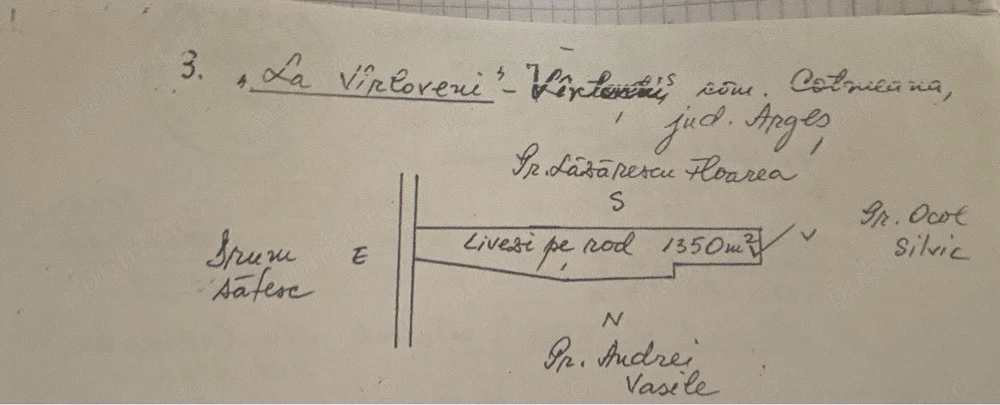 3. "La Vîrloveni" - com. Cotmeana,
jud. Argeș
Pr. Lăzărescu Floarea
S
Pr. Ocol
Silvic
Livezi pe rod 1350m² V
Drum
sătesc
E
N
Pr. Andrei
Vasile